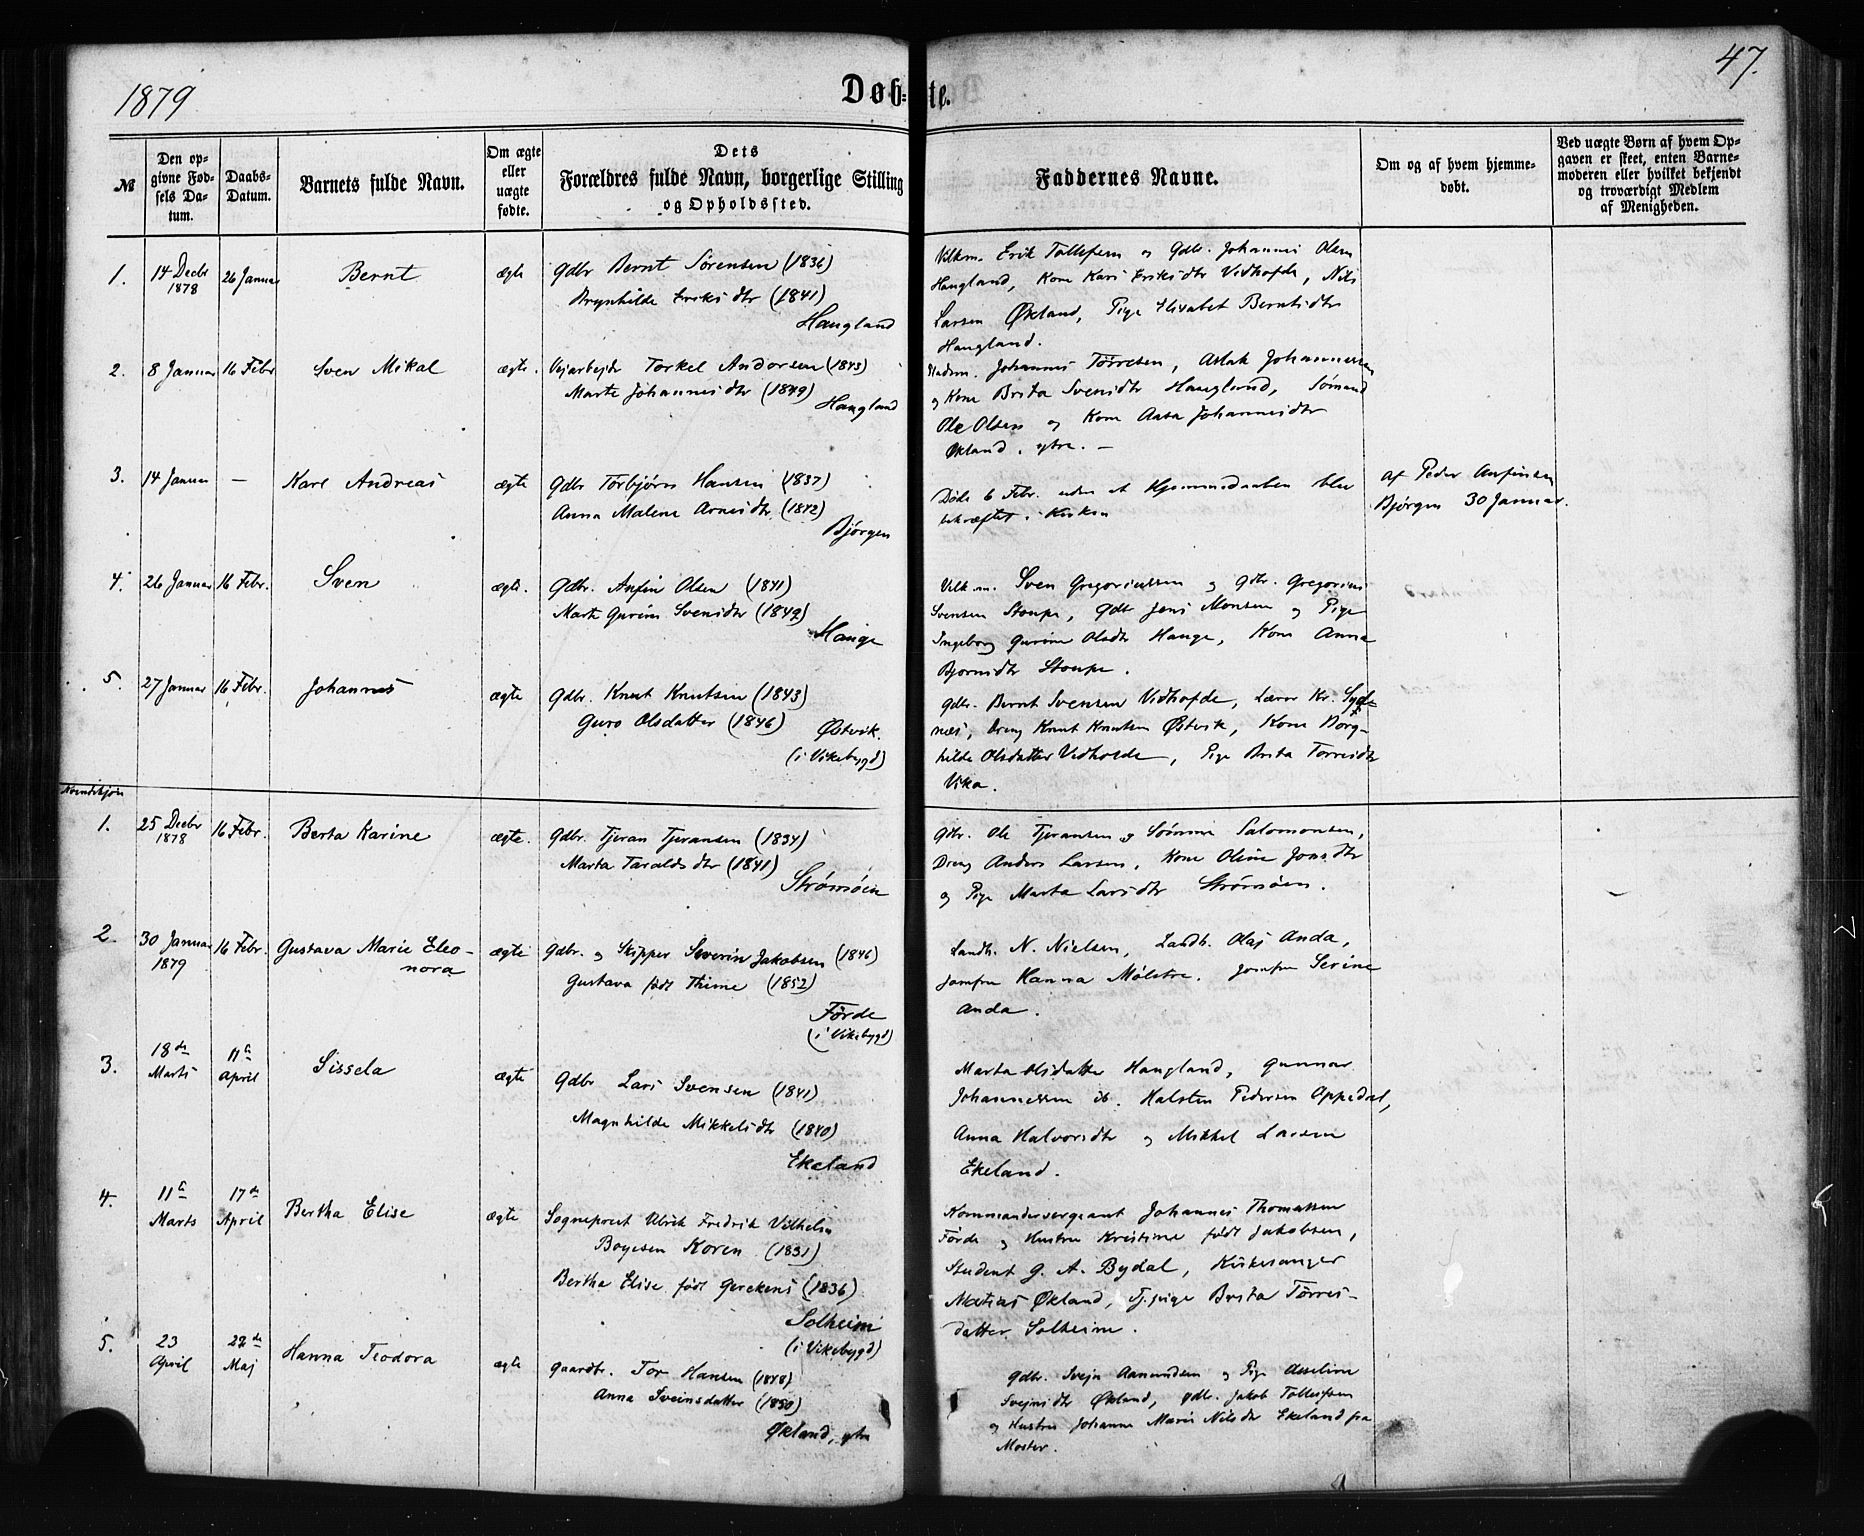 1879
Døb-te.
47.
№
Den opgivne Fødsels Datum.
Daabs-Datum.
Barnets fulde Navn.
Om ægte eller uægte fødte.
Dets Forældres fulde Navn, borgerlige Stilling og Opholdssted.
Faddernes Navne.
Om og af hvem hjemmedøbt.
Ved uægte Børn af hvem Opgaven er skeet, enten Barnemoderen eller hvilket bekjendt og troværdigt Medlem af Menigheden.
1. 14 Decbr 1878 26 Januar Bernt ægte
Gdbr Bernt Sørensen (1836)
Brynhilde Eriksdtr (1841)
Haugland
Erik Tollefsen og Gdbr. Johannes Olsen
Haugland, Kone Kari Eriksdtr Vidhofde, Nils
Larsen Økland, Pige Elisabet Berntsdtr
Haugland.
2. 8 Januar 16 Febr Sven Mikal ægte.
Vejarbejdr Torkel Andorsen (1843)
Marte Johannesdtr (1849)
Haugland
Johannes Tørresen, Aslak Johannessen
og Kone Brita Svensdtr Haugland, Sømand
Ole Olsen og Kone Aasa Johannesdtr
Økland, ytre. —
3. 14 Januar — Karl Andreas ægte
Gdbr Torbjørn Hansen (1837)
Anna Malene Arnesdtr (1842)
Bjørgen
Døde 6 Febr. uden at Hjemmedaaben blev
bekræftet i Kirken
af Peder Anfinsen
Bjørgen 30 Januar.
4. 26 Januar 16 Febr. Sven ægte.
Gdbr. Anfin Olsen (1841)
Marte Gurine Svensdtr (1849)
Hauge
Sven Gregoriussen og Gdbr. Gregorius
Svensen Stoupe, Gdbr Jens Monsen og Pige
Ingeborg Gurine Olsdtr Hauge, Kone Anna
Bjørnsdtr Stoupe.
5. 27 Januar 16 Febr. Johannes ægte
Gdbr. Knut Knutsen (1843)
Guro Olsdatter (1846)
Østvik.
(i Vikebygd)
Gdbr. Bernt Svensen Vidhofde, Lærer Kr. Syd-
næs, Dreng Knut Knutsen Østvik, Kone Borg-
hilde Olsdatter Vidhofde, Pige Brita Tørresdtr
Vika.
Kvindekjøn
1. 25 Decbr 1878 16 Febr. Berta Karine ægte.
Gdbr. Tjeran Tjeransen (1834)
Marta Taraldsdtr (1841)
Strømøen
Gdbr. Ole Tjeransen og Salomonsen,
Dreng Anders Larsen, Kone Oline Jonsdtr
og Pige Marta Larsdtr Strømøen.
2. 30 Januar 1879 16 Febr. Gustava Marie Eleo-
nora ægte
Gdbr. og Skipper Severin Jakobsen (1846)
Gustava født Thime (1852)
Førde
(i Vikebygd)
Landh. N. Nielsen, Landh. Olaj Anda,
Jomfru Hanna Mølstre. Jomfru Serine
Anda.
3. 18de Marts 11te April Sissela ægte
Gdbr Lars Svensen (1841)
Magnhilde Mikkelsdtr (1840)
Ekeland
Marta Olsdatter Haugland, Gunnar
Johannessen ib. Halsten Pedersen Oppedal,
Anna Halvorsdtr og Mikkel Larsen
Ekeland.
4. 11te Marts 17de April Bertha Elise ægte
Sogneprest Ulrik Fredrik Vilhelm
Boyesen Koren (1831)
Bertha Elise født Gerckens (1836)
Solheim
(i Vikebygd)
Kommandersergeant Johannes Thomassen
Førde og Hustru Kristine født Jakobsen,
Student G. A. Bydal, Kirkesanger
Matias Økland, Tj.pige Brita Tørres-
datter Solheim.
5. 23 April 22de Maj Hanna Teodora ægte
Gaardbr. Tor Hansen (1848)
Anna Sveinsdatter (1850)
Økland, ytre
Gdbr. Svejn Aamundsen og Pige Asseline
Svejnsdtr Økland, Gdbr. Jakob Tollefsen
og Hustru Johanne Marie Nilsdtr Ekeland fra
Moster.